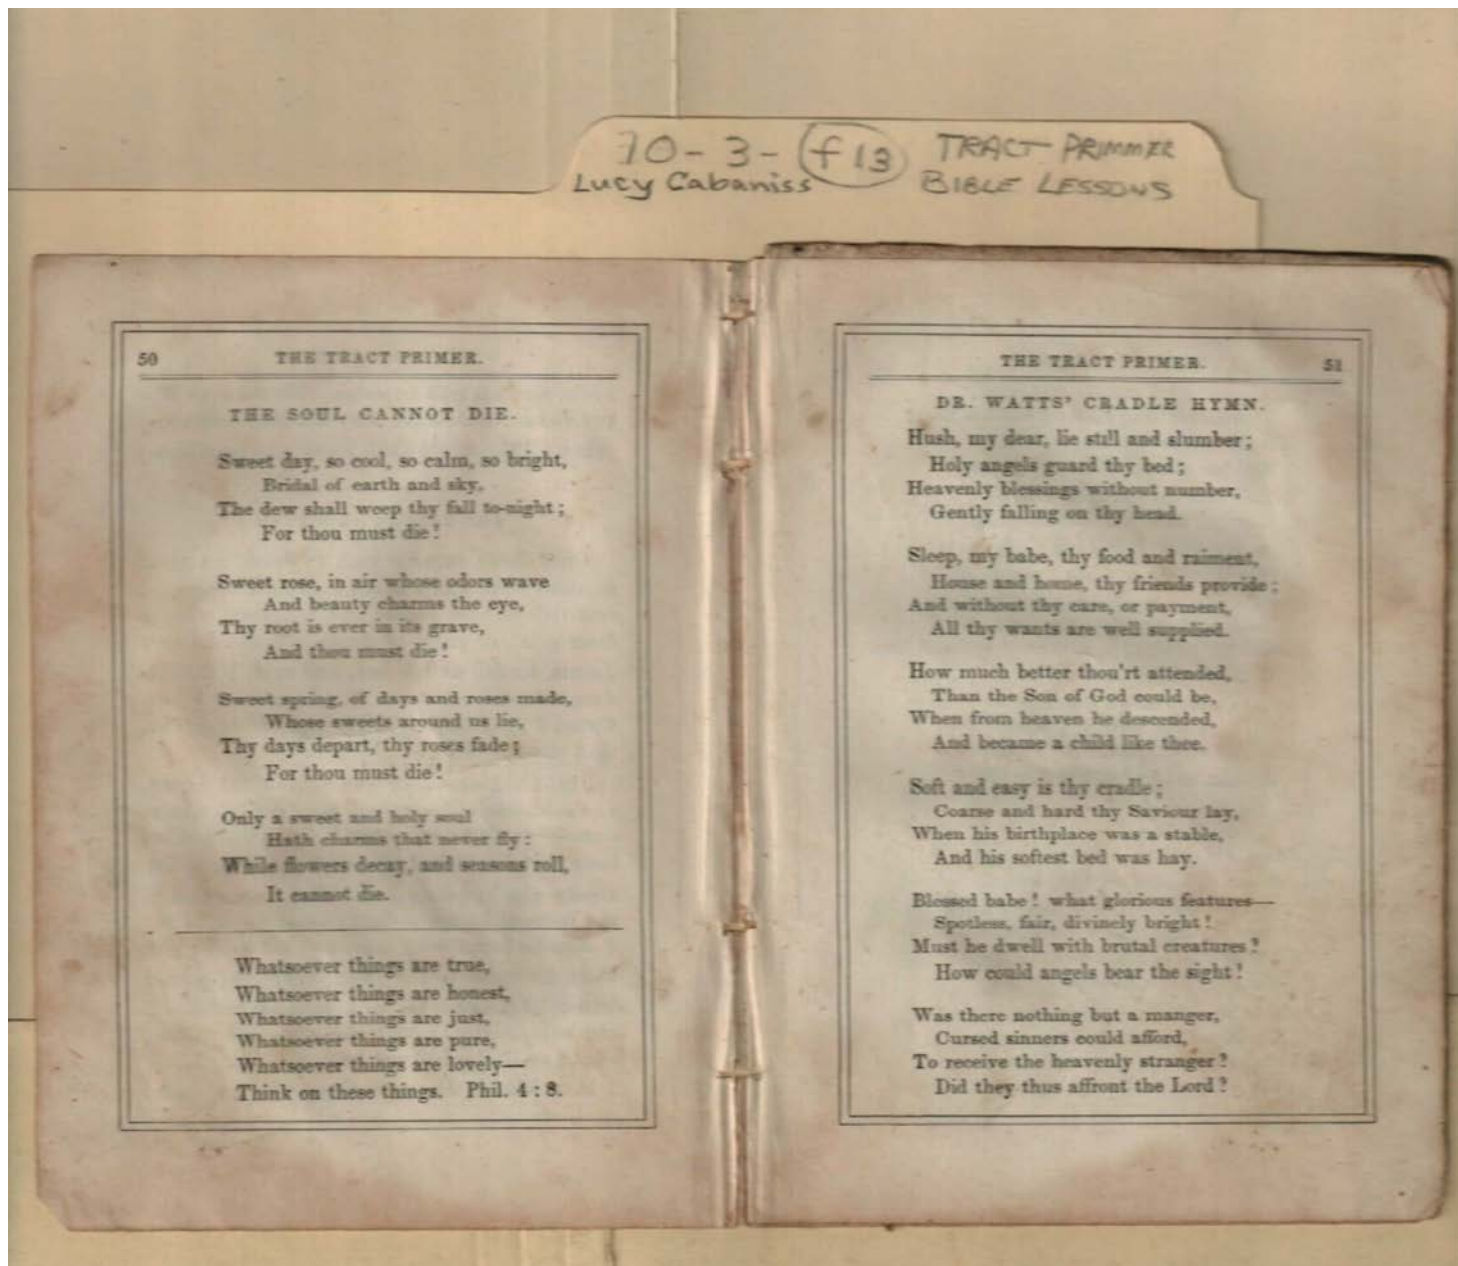 70-3-f13 TRACT PRIMMER
Lucy Cabaniss BIBLE LESSONS
50 THE TRACT PRIMER.
THE SOUL CANNOT DIE.
Sweet day, so cool, so calm, so bright,
Bridal of earth and sky,
The dew shall weep thy fall to-night;
For thou must die!
Sweet rose, in air whose odors wave
And beauty charms the eye,
Thy root is ever in its grave,
And thou must die!
Sweet spring, of days and roses made,
Whose sweets around us lie,
Thy days depart, thy roses fade;
For thou must die!
Only a sweet and holy soul
Hath charms that never fly:
While flowers decay, and seasons roll,
It cannot die.
Whatsoever things are true,
Whatsoever things are honest,
Whatsoever things are just,
Whatsoever things are pure,
Whatsoever things are lovely—
Think on these things. Phil. 4:8.
THE TRACT PRIMER. 51
DR. WATTS' CRADLE HYMN.
Hush, my dear, lie still and slumber;
Holy angels guard thy bed;
Heavenly blessings without number,
Gently falling on thy head.
Sleep, my babe, thy food and raiment,
House and home, thy friends provide;
And without thy care, or payment,
All thy wants are well supplied.
How much better thou'rt attended,
Than the Son of God could be,
When from heaven he descended,
And became a child like thee.
Soft and easy is thy cradle;
Coarse and hard thy Saviour lay,
When his birthplace was a stable,
And his softest bed was hay.
Blessed babe! what glorious features—
Spotless, fair, divinely bright!
Must he dwell with brutal creatures?
How could angels bear the sight!
Was there nothing but a manger,
Cursed sinners could afford,
To receive the heavenly stranger?
Did they thus affront the Lord?